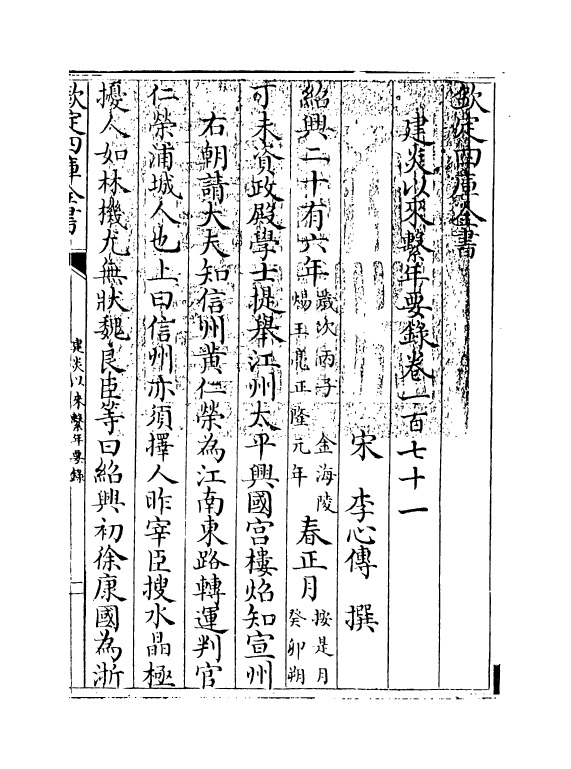 欽定四庫全書
建炎以來繫年要録卷一百七十一
宋 李心傳 撰
紹興二十有六年歲次丙子 金海陵煬王亮正隆元年春正月按是月癸卯朔
丁未資政殿學士提舉江州太平興國宮樓炤知宣州
右朝請大夫知信州黄仁榮為江南東路轉運判官
仁榮浦城人也上曰信州亦須擇人昨宰臣搜水晶極
擾人如林機尤無狀魏良臣等曰紹興初徐康國為浙
欽定四庫全書
建炎以來繫年要録